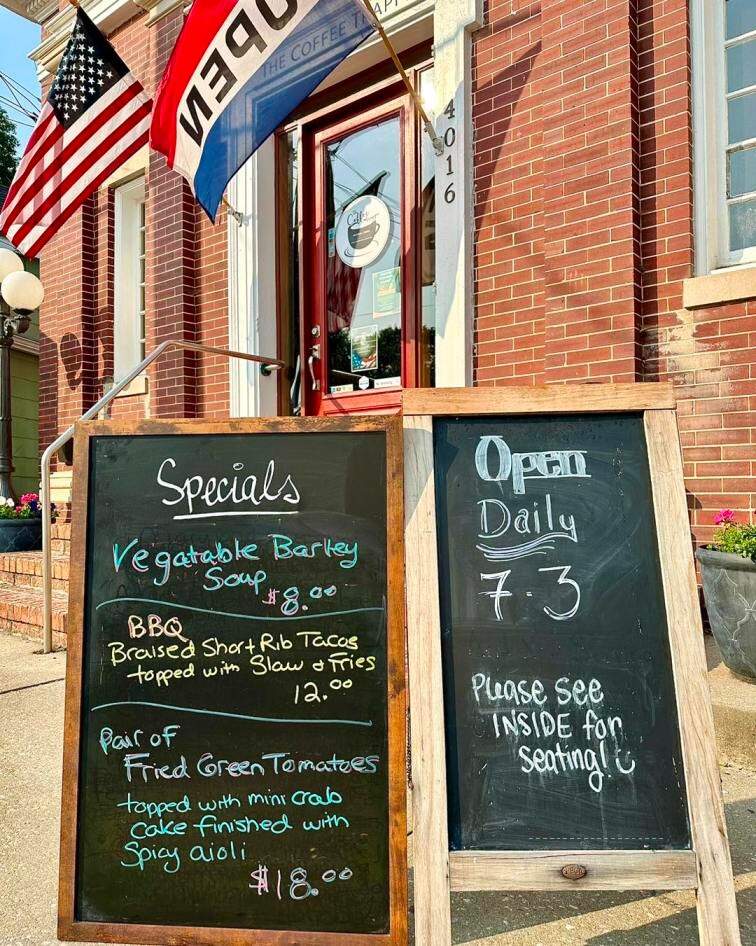 OPEN
THE COFFEE
4016
Café
Specials
Vegatable Barley
Soup
$8.00
BBQ
Braised Short Rib Tacos
topped with Slaw & Fries
12.00
Pair of
Fried Green Tomatoes
topped with mini crab
cake finished with
Spicy aioli
$18.00
Open
Daily
7-3
Please See
INSIDE for
Seating!